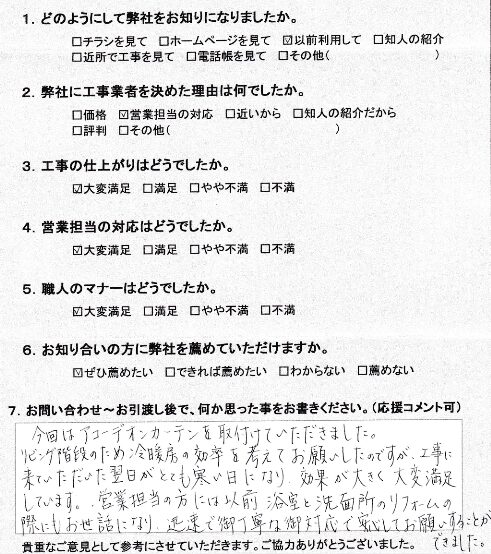 1. どのようにして弊社をお知りになりましたか。
□チラシを見て □ホームページを見て ☑以前利用して □知人の紹介
□近所で工事を見て □電話帳を見て □その他( )
2. 弊社に工事業者を決めた理由は何でしたか。
□価格 ☑営業担当の対応 □近いから □知人の紹介だから
□評判 □その他( )
3. 工事の仕上がりはどうでしたか。
☑大変満足 □満足 □やや不満 □不満
4. 営業担当の対応はどうでしたか。
☑大変満足 □満足 □やや不満 □不満
5. 職人のマナーはどうでしたか。
☑大変満足 □満足 □やや不満 □不満
6. お知り合いの方に弊社を薦めていただけますか。
☑ぜひ薦めたい □できれば薦めたい □わからない □薦めない
7. お問い合わせ～お引渡し後で、何か思った事をお書きください。(応援コメント可)
今回はアコーデオンカーテンを取付けていただきました。
リビング階段のため冷暖房の効率を考えてお願いしたのですが、工事に
来ていただいた翌日がとても寒い日になり、効果が大きく大変満足
しています。営業担当の方には以前浴室と洗面所のリフォームの
際にもお世話になり、迅速で御丁寧な御対応で安心してお願いすることが
できました。
貴重なご意見として参考にさせていただきます。ご協力ありがとうございました。